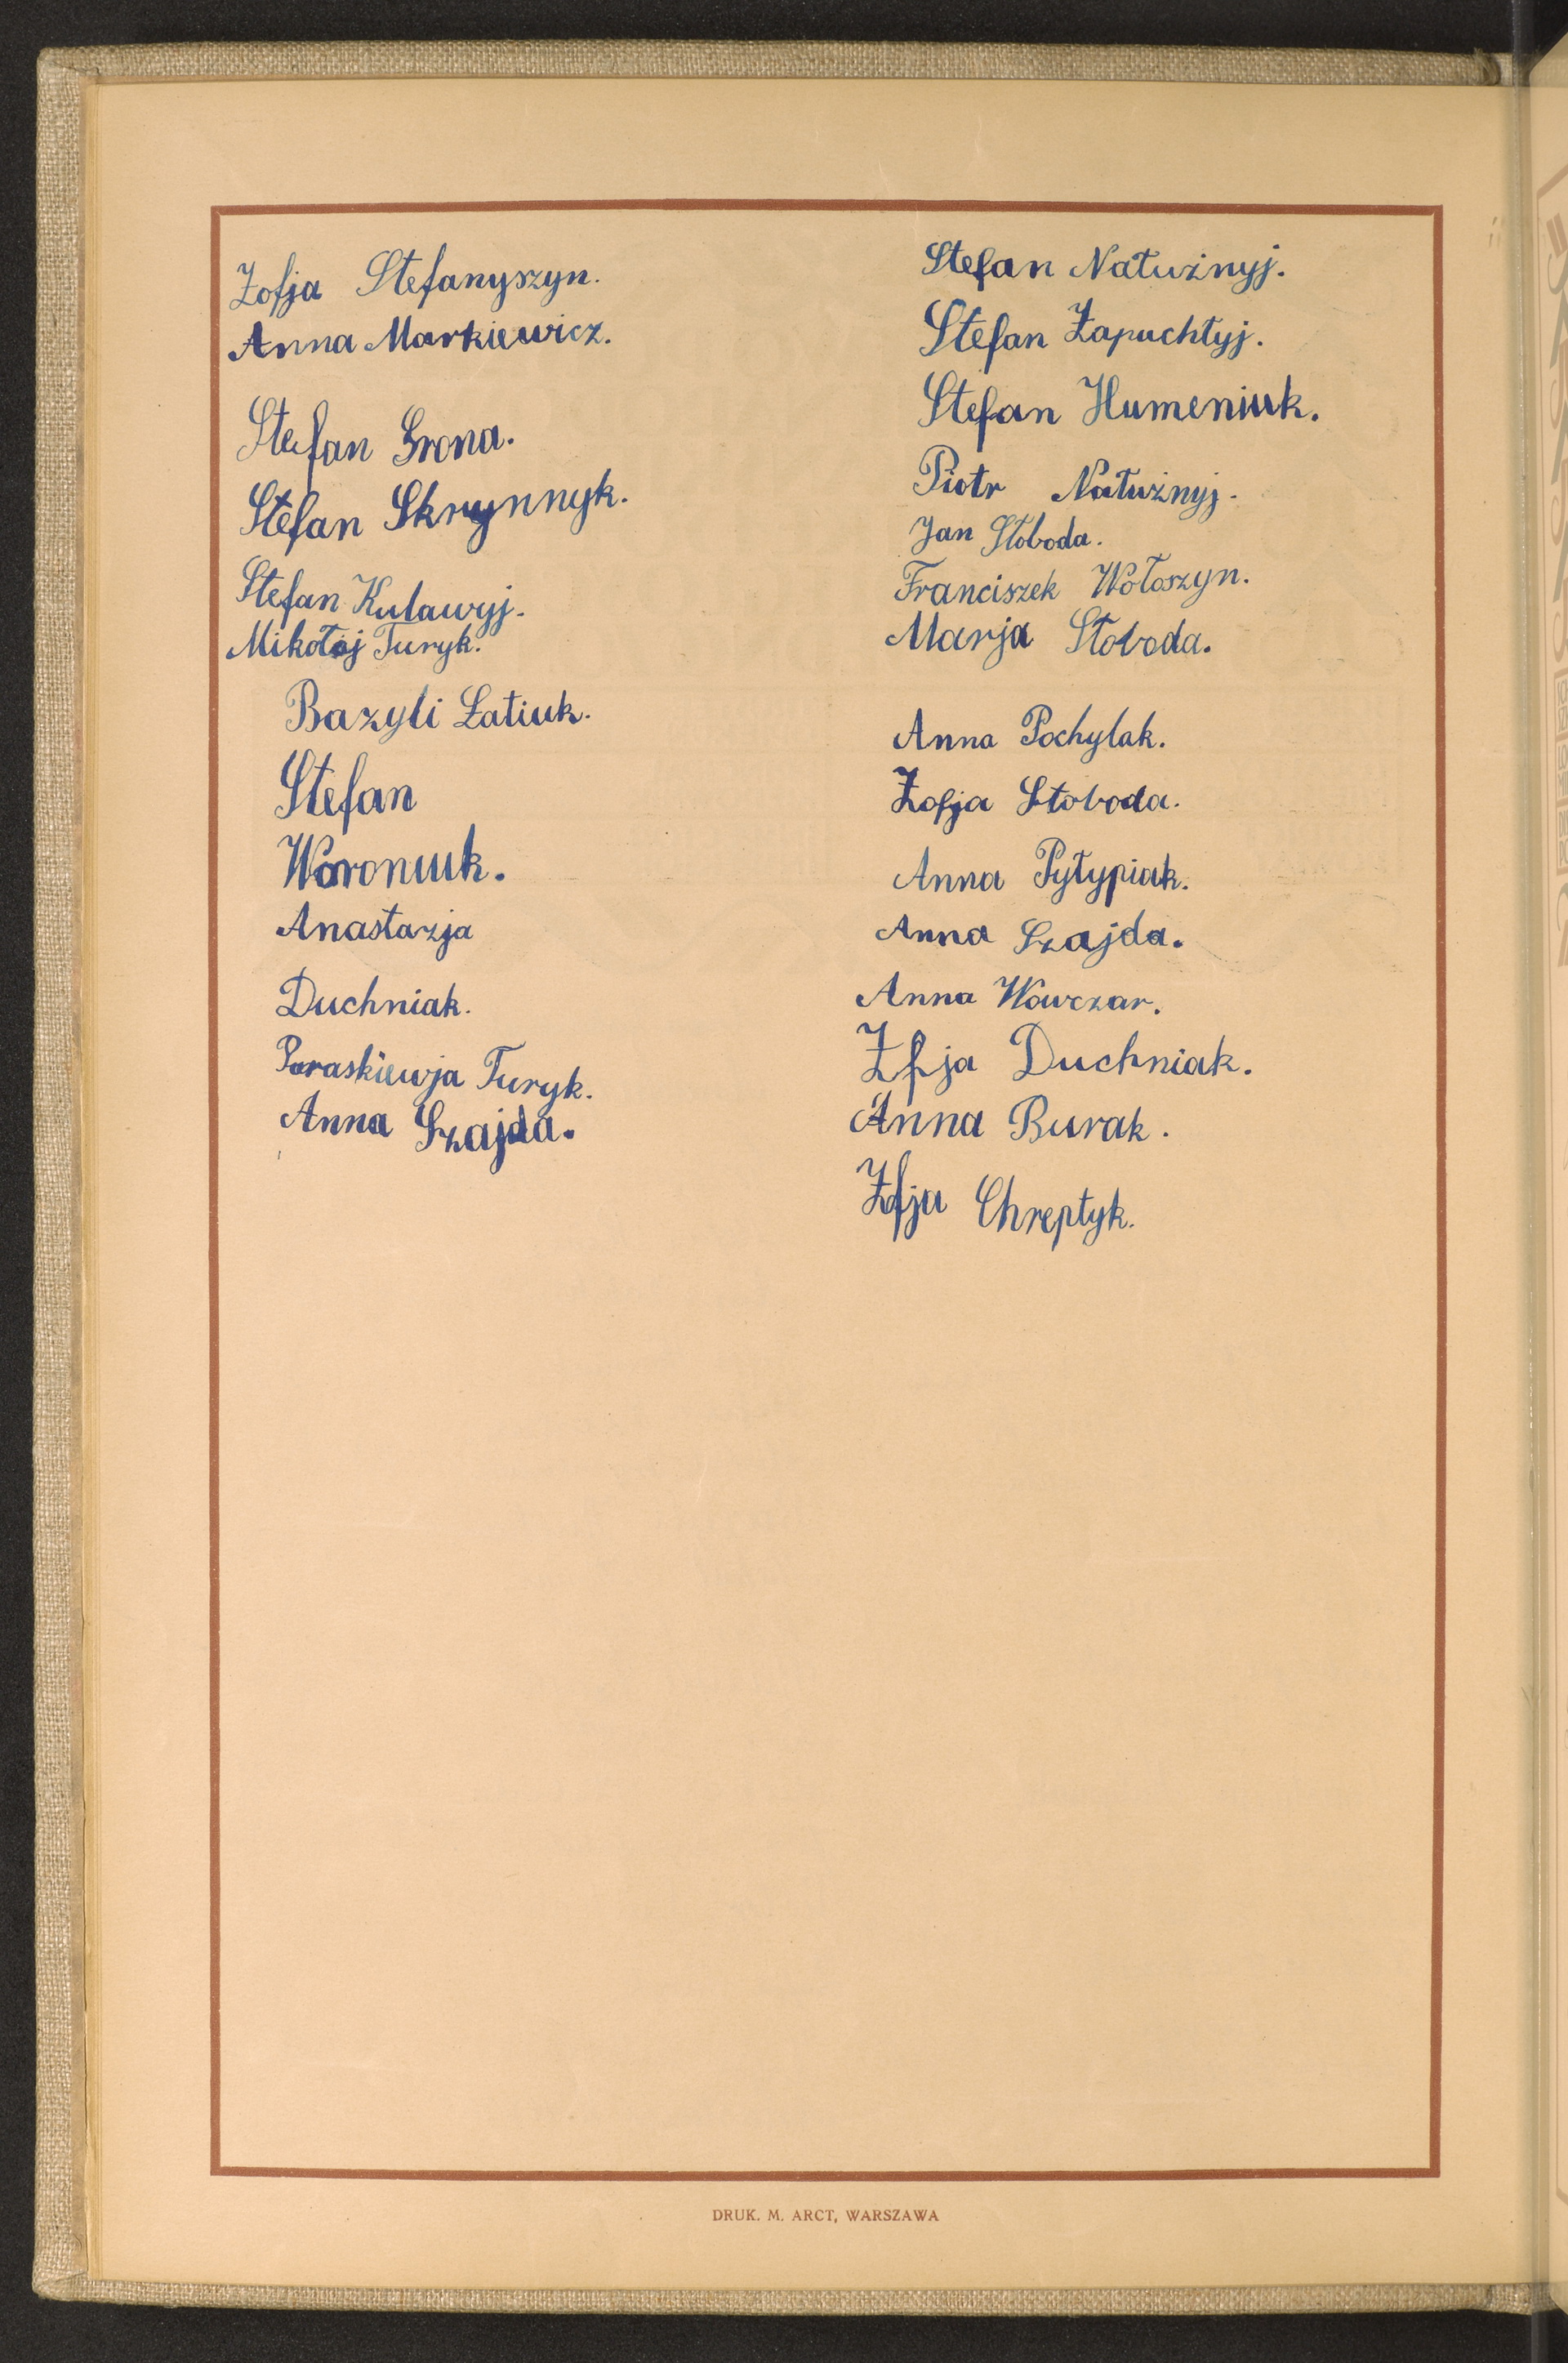 Zofja Stefanyszyn.
Anna Markiewicz.
Stefan Grona.
Stefan Skrynnyk.
Stefan Kuławyj.
Mikołaj Turyk.
Bazyli Łatiuk.
Stefan
Woroniuk.
Anastazja
Duchniak.
Paraskiewja Turyk.
Anna Szajda.
Stefan Natużnyj.
Stefan Zapuchłyj.
Stefan Humeniuk.
Piotr Natużnyj.
Jan Słoboda.
Franciszek Wołoszyn.
Marja Słoboda.
Anna Pochylak.
Zofja Słoboda.
Anna Pyłypiak.
Anna Szajda.
Anna Wowczar.
Zfja Duchniak.
Anna Burak.
Zofja Chreptyk.
DRUK. M. ARCT, WARSZAWA